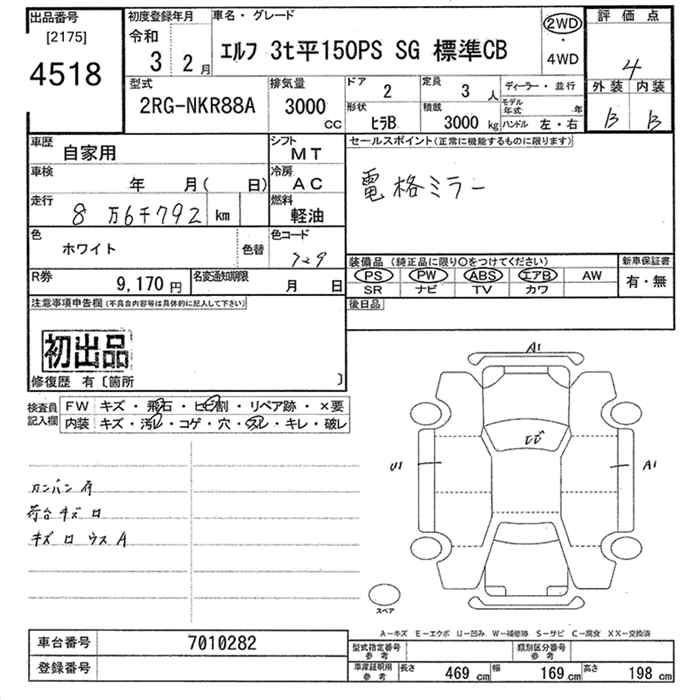 出品番号
[2175]
4518
初度登録年月
令和
3 2月
車名・グレード
エルフ 3t平150PS SG 標準CB
2WD
・
4WD
評価点
4
外装 内装
B B
型式
2RG-NKR88A
排気量
3000
CC
ドア
2
定員
3 人
ディーラー・並行
モデル年式 年
形状
ヒラB
積載
3000 kg
ハンドル 左・右
車歴
自家用
シフト
MT
セールスポイント(正常に機能するものに限ります)
電格ミラー
車検
年 月( 日)
冷房
AC
走行
8万6千792 km
燃料
軽油
色
ホワイト
色替
色コード
729
装備品(純正品に限り○をつけてください)
PS PW ABS エアB AW
SR ナビ TV カワ
新車保証書
有・無
R券
9,170 円
名変通知期限
月 日
後日品
注意事項申告欄(不具合内容等は具体的に記入して下さい)
初出品
修復歴 有〔箇所 〕
検査員記入欄
FW キズ・飛石・ヒビ割・リペア跡・×要
内装 キズ・汚レ・コゲ・穴・スレ・キレ・破レ
カンバン有
荷台キズロ
キズロウスA
A1
ヒビ
U1
A1
スペア
A-キズ E-エクボ U-凹み W-補修跡 S-サビ C-腐食 XX-交換済
車台番号 7010282
登録番号
型式指定番号
参考
類別区分番号
参考
車庫証明用
参考
長さ 469 cm 幅 169 cm 高さ 198 cm